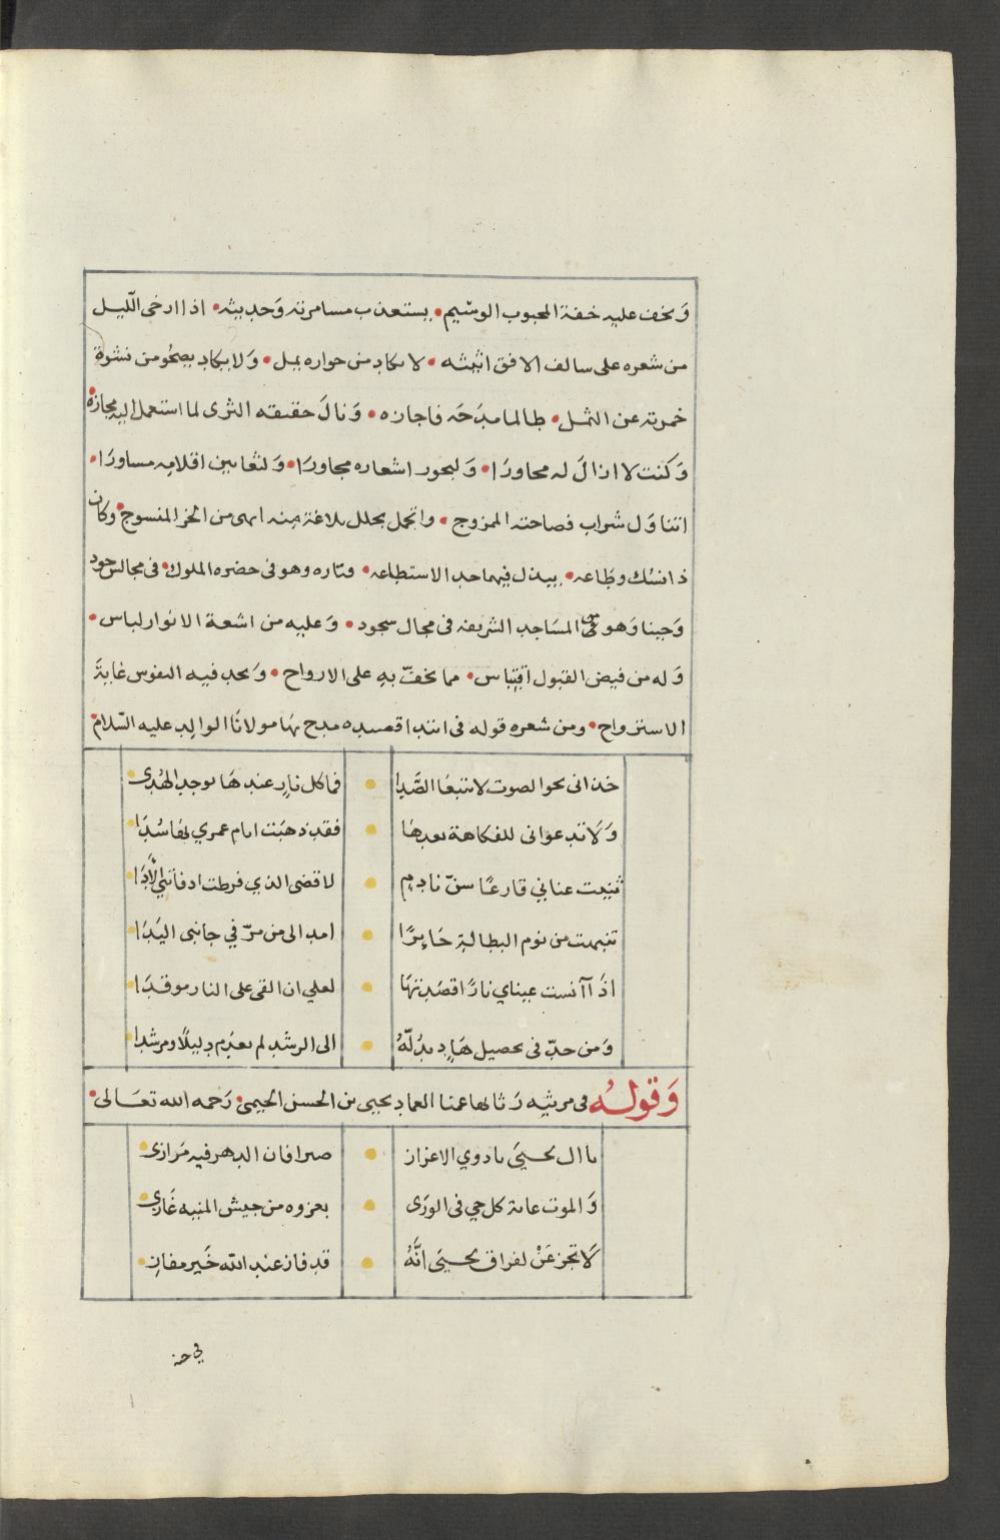 وَيخف عليه خفة المحبوب الوسيم • يستعذب مسامرته وَحديثه • اذا ارخى الّليل
من شعره على سالف الافق اثيثه • لا يكاد من حواره يمل • وَلا يكاد يصحُو من نشوة
خمرته عن الثمل • طالما مدَحَه فاجازه • وَنالَ حقيقه الثرى لما استعمل اليه مجازه •
وَكنت لا ازالَ له محاورًا • وَلبحور اشعاره مجاورًا • وَلثعابين اقلامه مساورًا •
اتناوَل شراب فصاحته الممزوج • واتجمل بحلل بلاغة منه ابهى من الخز المنسوج • وكان
ذا نسُك وطَاعه • يبذل فيهما حد الاستطاعه • فتاره وهو فى حضره الملوك • فى مجالس جود
وَحينا وَهو فى المسَاجد الشريفه فى مجال سجود • وَعليه من اشعة الانوار لباس •
وَله من فيض القبول اقتِباس • مما يخفّ بهِ على الارواح • وَيجد فيه النفوس غايةَ
الاسترواح • ومن شعره قوله فى ابتدا قصيده مدح بهَا مولانَا الوالد عليه السّلام •
خذانى نحو الصوت لا تتبعَا الصَّدا • فما كل نارٍ عندهَا يوجد الهُدى •
وَلَا تدعوانى للفكاهة بعدهَا • فقد ذهَبَت ايام عمري بهَا سُدَا •
ثنيت عناني قارعًا سنّ نادمٍ • لاقضى الذي فرطت اذ فاتني الْاَدَا •
تنبهت من نوم البطالة حَايرًا • امد الى من مرّ في جانبى اليَدَا •
اذَا آنست عيناي نارًا قصَدتهَا • لعلي ان القى على النار موقدَا •
وَمن جدّ فى تحصيل هَادٍ يدُلّهُ • الى الرشد لم يعدَم دليلًا ومرشدا •
وَقولُه فى مرثيه رَثا بها عمنا العماد يحيى بن الحسن الحيمى • رَحمه الله تعَالى •
يا ال يحيىَ يا ذوي الاعزاز • صبرا فان الدهر فيه مَرازى •
وَالموت غاية كل حي فى الورَى • يعزوه من جيش المنيه غَازى •
لَا تجزعَنْ لفراق يحيىَ انَّهُ • قد فاز عند الله خَير مفاز •
في جنة